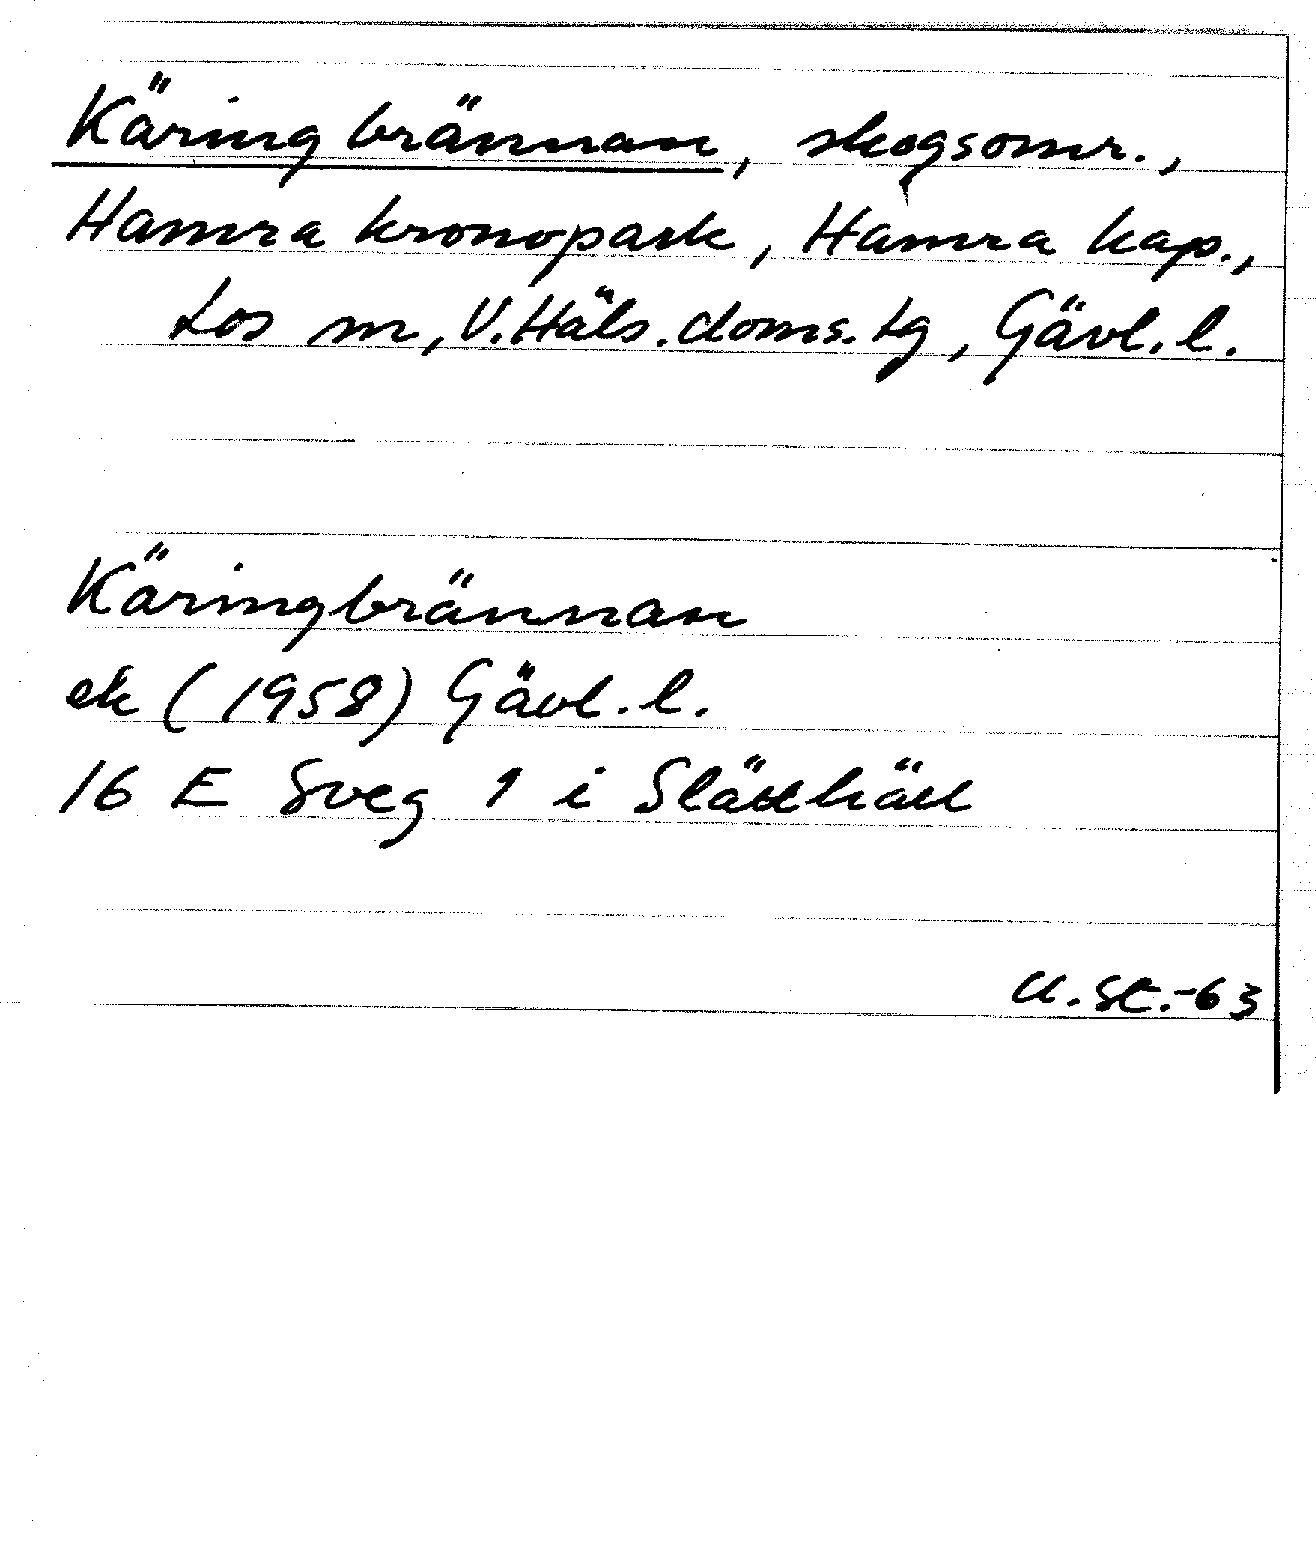 Käringbrännan, skogsomr.,
Hamra kronopark, Hamra kap.,
Los sn, V. Häls. doms. tg, Gävl. l.
Käringbrännan
ek (1958) Gävl. l.
16 E Sveg 1 i
U. St. -63